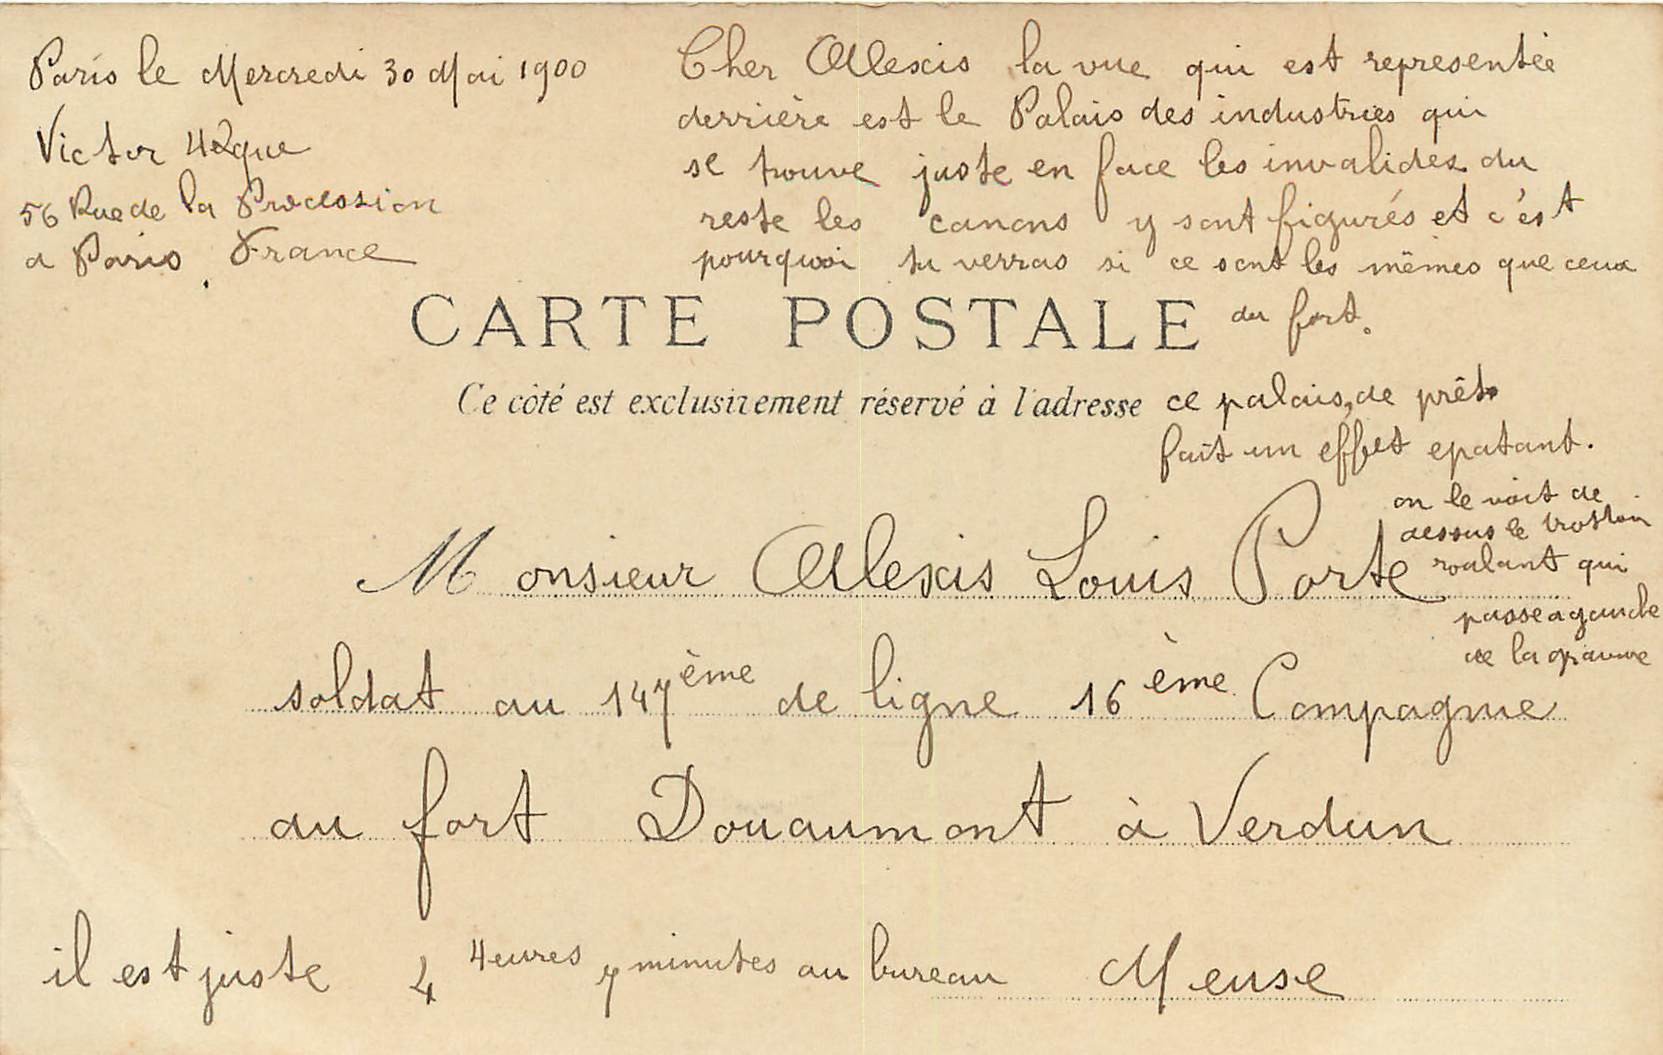 Paris le Mercredi 30 Mai 1900
Victor
56 Rue de la Procession
a Paris. France
Cher Alexis la vue qui est representée
derrière est le Palais des industries qui
se trouve juste en face les invalides du
reste les canons y sont figurés et c'est
pourquoi tu verras si ce sont les mêmes que ceux
du fort.
CARTE POSTALE
Ce côté est exclusivement réservé à l'adresse
ce palais, de prêt
fait un effet epatant.
on le voit de
dessus le trottoir
roulant qui
passe a gauche
de la gravure
Monsieur Alexis Louis Porte
soldat au 147ème de ligne 16ème Compagnie
au fort Douaumont à Verdun
Meuse
il est juste 4 Heures 7 minutes au bureau